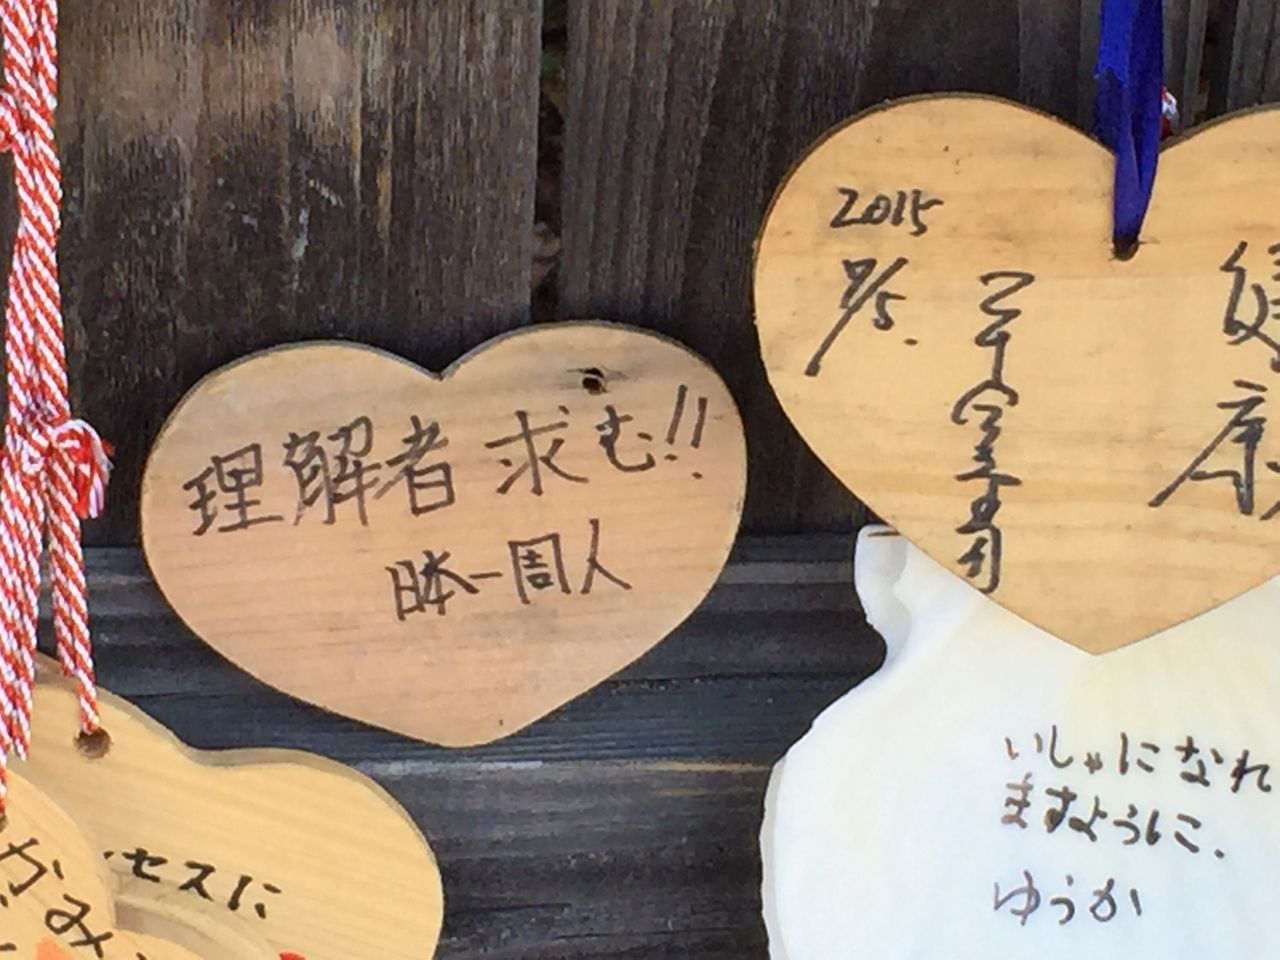 理解者 求む!!
日本一周人
2015
7/5.
健康
いしゃになれ
ますように.
ゆうか
セスに
かみ